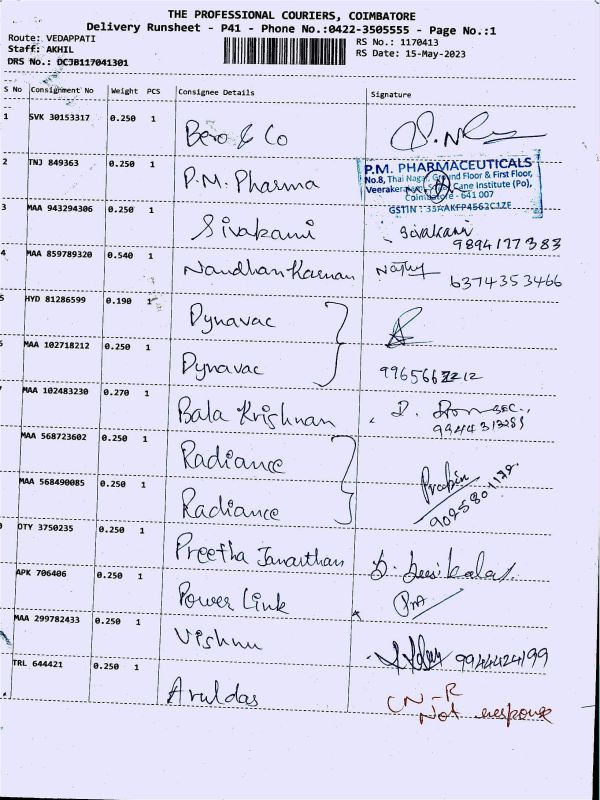 THE PROFESSIONAL COURIERS, COIMBATORE
Delivery Runsheet - P41 - Phone No.:0422-3505555 - Page No.:1
Route: VEDAPPATI
Staff: AKHIL
DRS No.: DCJB117041301
RS No.: 1170413
RS Date: 15-May-2023
S No Consignment No Weight PCS Consignee Details Signature
1 SVK 30153317 0.250 1 Bero & Co
2 TNJ 849363 0.250 1 P.M. Pharma
P.M. PHARMACEUTICALS
No.8, Thai Nagar, Ground Floor & First Floor,
Cane Institute (Po),
Coimbatore - 641 007
GSTIN :
3 MAA 943294306 0.250 1 Sivakami Sivakami
9894177383
4 MAA 859789320 0.540 1 Nandhan Kannan 6374353466
5 HYD 81286599 0.190 1 Dynavac
MAA 102718212 0.250 1 Dynavac
MAA 102483230 0.270 1 Bala Krishnan
MAA 568723602 0.250 1 Radiance
MAA 568490085 0.250 1 Radiance
OTY 3750235 0.250 1 Preetha Janarthan
APK 706406 0.250 1 Power Link
MAA 299782433 0.250 1 Vishnu 9944424199
TRL 644421 0.250 1 Aruldas CN-R
Not response